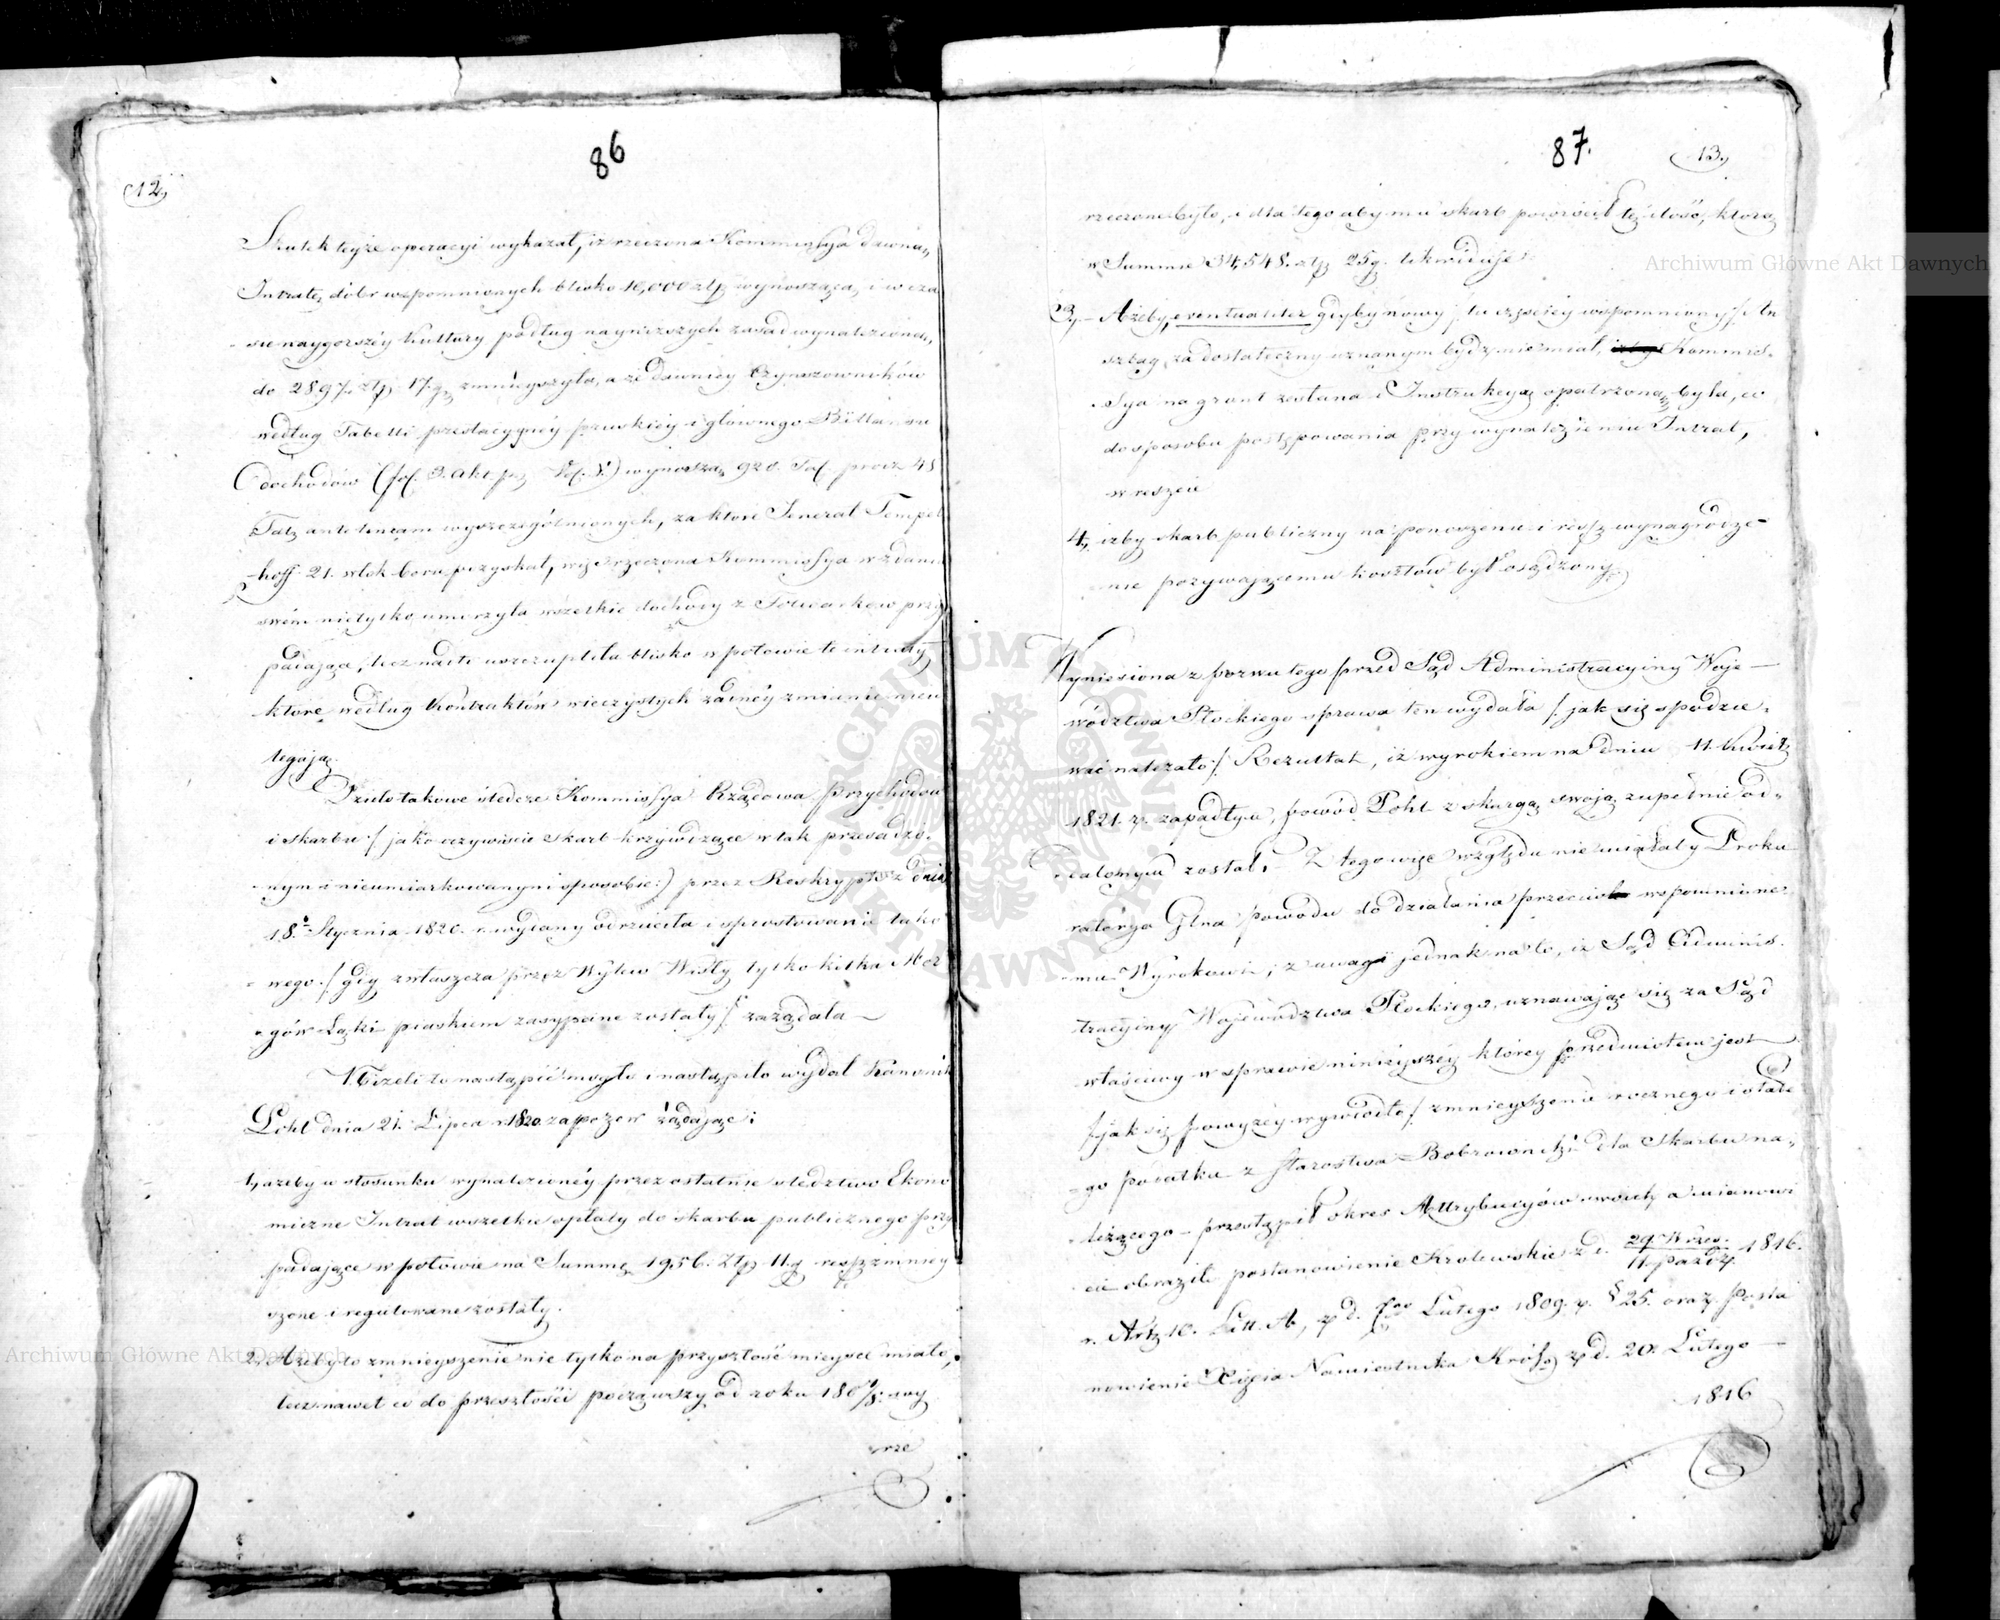 86
12,
Skutek teyże operacyi wykazał, iż rzeczona Kommissya dawną
Intratę dóbr wspomnionych blisko 10,000 złp wynoszącą, i w cza
sie naygorszéy kultury podług nayniższych zasad wynalezioną,
do 2897. złp 17. g. zmnieyszyła, a że dawniey Czynszowników
według Tabelli prestacyynéy pruskiéy i głównego Billansu
dochodów (fol. 3. Akt Vol. I.) wynoszą 920. Tal. prócz 48
Tal. antehneam wyszczególnionych, za które Jenerał Tempel
hoff 21. włok boru pozyskał, więc rzeczona Kommissya w zdaniu
swém nietylko umorzyła wszelkie dochody z Folwarków przy
padające, lecz nadto uszczupliła blisko w połowie te intraty
które według Kontraktów wieczystych żadnéy zmianie nieu
legają.
Dzieło takowe śledcze Kommissya Rządowa Przychodów
i Skarbu /: jako oczywiście Skarb krzywdzące w tak przesadzo
nym i nieumiarkowanym sposobie :) przez Reskrypt z dnia
18. Stycznia 1820. r. wydany odrzuciła i sprostowania tako
wego /: gdy zwłaszcza przez Wylew Wisły tylko kilka Mor
gów Łąki piaskiem zasypane zostały :/ zażądała
Niżeli to nastąpić mogło i nastąpiło wydał Kanonik
Pohl dnia 21. Lipca 1820. zapozew żądając:
1, ażeby w stosunku wynalezionéy przez ostatnie śledztwo Ekono
miczne Intrat wszelkie opłaty do skarbu publicznego przy
padające w połowie na Summę 1956. Złp 11. g. zmniey
szone i regulowane zostały.
2, Ażeby to zmnieyszenie nie tylko na przyszłość mieysce miało,
lecz nawet co do przeszłości począwszy od roku 180 7/8. wy
rze
87.
13,
rzeczone było, i dla tego aby mu skarb powrócił tę ilość, którą
w Summie 34,548. złp 25 g. likwiduje
3, Ażeby eventualiter gdyby nowy, tu częściéy wspomniony
szlag, za dostateczny uznanym bydź niemiał, Kommis
sya na grunt zesłana i Instrukcyą opatrzoną była, co
do sposobu postępowania przy wynalezieniu Intrat,
wreszcie
4, iżby skarb publiczny na ponoszenie i wynagrodze
nie pozywającemu kosztów był osądzony.
Wyniesiona z pozwu tego przed Sąd Administracyiny Woje
wództwa Płockiego sprawa ten wydała /: jak się spodzie
wać należało :/ Rezultat, iż wyrokiem na dniu 11. Kwiet.
1821. r. zapadłym, powód Pohl z skargą swoją zupełnie od
dalonym został. Z tego więc względu nie miałaby Proku
ratorya Glna powodu do działania przeciwko wspomnione
mu Wyrokowi; z uwagi jednak na to, iż Sąd Adminis
tracyiny Województwa Płockiego, uznawając się za Sąd
właściwy w sprawie ninieyszéy którey przedmiotem jest
/: jak się powyżéy wywiodło :/ zmnieyszenie rocznego i stałe
go podatku z Starostwa Bobrownik dla Skarbu na
leżącego – przestąpił okres Attrybucyów swoich a mianowi
cie obraził postanowienie Królewskie z d. 29. Wrześ. / 11. Paźdz. 1816.
r. Art. 10. Litt. A, z d. Lutego 1809. r. § 25. oraz Posta
nowienie Xięcia Namiestnika Król. z d. 20. Lutego
1816
ARCHIWUM GŁÓWNE AKT DAWNYCH
Archiwum Główne Akt Dawnych
Archiwum Główne Akt Dawnych